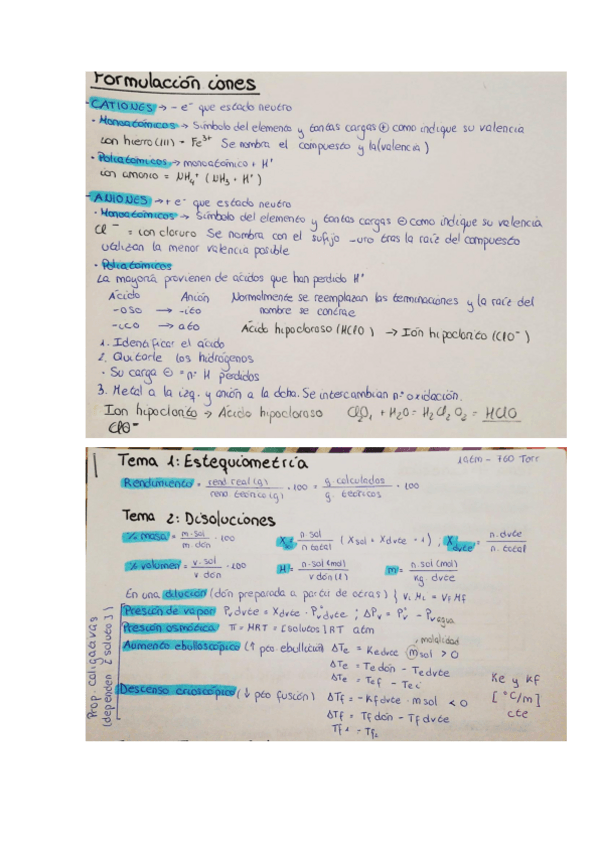 Formulación iones
- CATIONES → - e⁻ que estado neutro
· Monoatómicos → Símbolo del elemento y tantas cargas ⊕ como indique su valencia
ion hierro (III) = Fe³⁺ Se nombra el compuesto y la (valencia)
· Poliatómicos → monoatómico + H⁺
ion amonio = NH₄⁺ (NH₃ + H⁺)
- ANIONES → + e⁻ que estado neutro
· Monoatómicos → Símbolo del elemento y tantas cargas ⊖ como indique su valencia
Cl⁻ = ion cloruro Se nombra con el sufijo -uro tras la raíz del compuesto
utilizan la menor valencia posible
· Poliatómicos
La mayoría provienen de ácidos que han perdido H⁺
Ácido Anión Normalmente se reemplazan las terminaciones y la raíz del
-oso → -ito nombre se contrae
-ico → ato Ácido hipocloroso (HClO) → Ión hipoclorito (ClO⁻)
1. Identificar el ácido
2. Quitarle los hidrógenos
· Su carga ⊖ = nº H perdidos
3. Metal a la izq. y anión a la dcha. Se intercambian nº oxidación.
Ion hipoclorito → Ácido hipocloroso Cl₂O₁ + H₂O = H₂Cl₂O₂ = HClO
ClO⁻
Tema 1: Estequiometría 1 atm - 760 Torr
Rendimiento = rend real (g) / rend teórico (g) · 100 = g. calculados / g. teóricos · 100
Tema 2: Disoluciones
% masa = m. sol / m. don · 100 X = n. sol / n total (X sol + X dvte = 1) ; X dvte = n. dvte / n. total
% volumen = v. sol / v don · 100 M = n. sol (mol) / v don (l) m = n. sol (mol) / kg dvte
En una dilución (don preparada a partir de otras) } V₁M₁ = VfMf
Prop. coligativas (dependen [soluto])
Presión de vapor Pv dvte = X dvte · P°v dvte ; ΔPv = P°v - Pv agua
Presión osmótica π = MRT = [solutos] RT atm
molalidad
Aumento ebulloscópico (↑ pto. ebullición) ΔTe = Ke dvte · m sol > 0
ΔTe = Te don - Te dvte
ΔTe = Tef - Tei
Ke y Kf
[°C/m]
cte
Descenso crioscópico (↓ pto fusión) ΔTf = - Kf dvte · m sol < 0
ΔTf = Tf don - Tf dvte